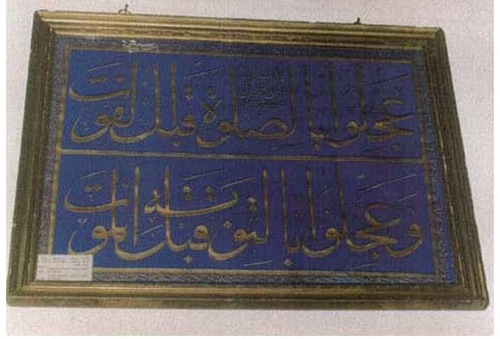 عجلوا بالصلوة قبل الفوت
وعجلوا بالتوبة قبل الموت